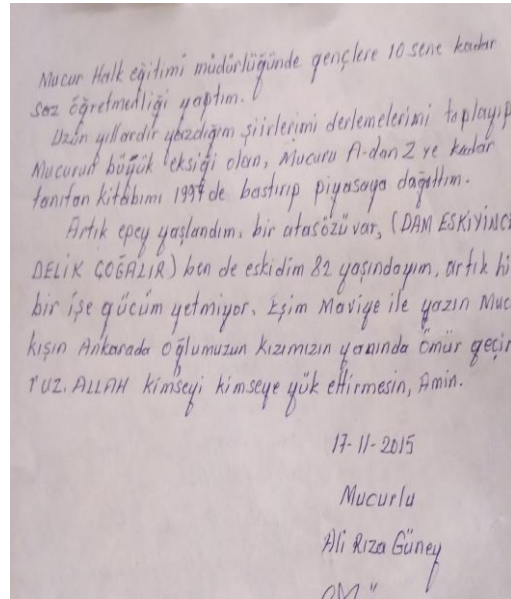 Mucur Halk eğitimi müdürlüğünde gençlere 10 sene kadar
saz öğretmenliği yaptım.
Uzun yıllardır yazdığım şiirlerimi derlemelerimi toplayıp
Mucurun büyük eksiği olan, Mucuru A-dan Z ye kadar
tanıtan kitabımı 1997 de bastırıp piyasaya dağıttım.
Artık epey yaşlandım, bir atasözü var, (DAM ESKİYİNCE
DELİK ÇOĞALIR) ben de eskidim 82 yaşındayım, artık hi
bir işe gücüm yetmiyor. Eşim Maviye ile yazın Muc
kışın Ankarada oğlumuzun kızımızın yanında ömür geçir
ruz. ALLAH kimseyi kimseye yük ettirmesin, Amin.
17-11-2015
Mucurlu
Ali Rıza Güney